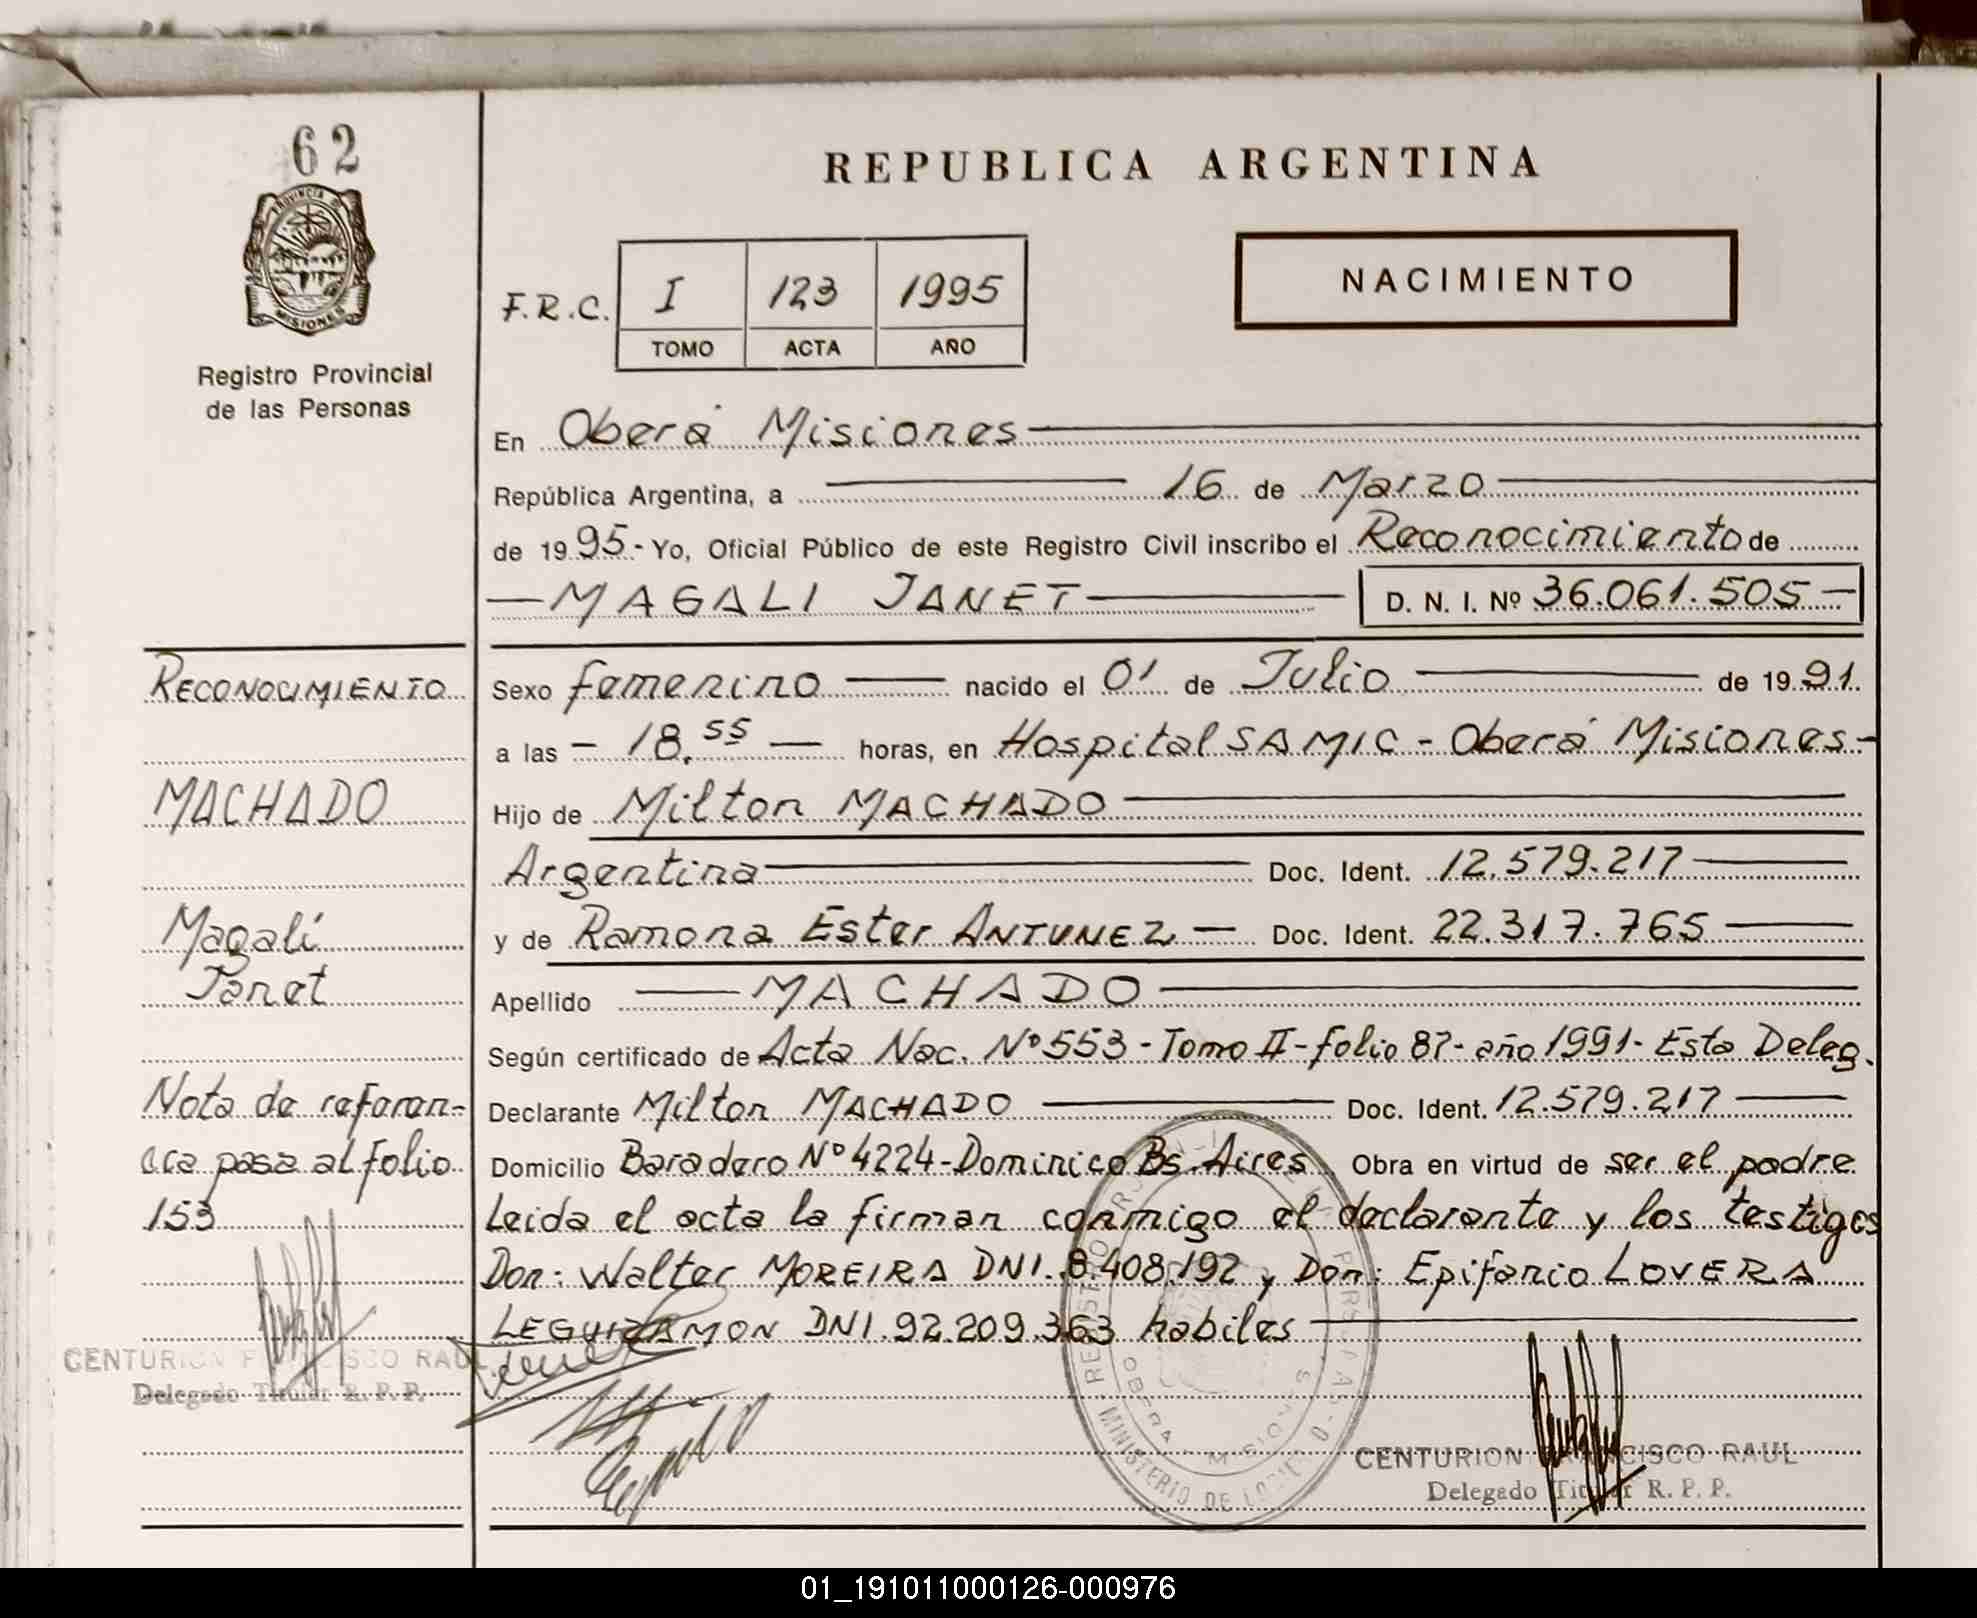 62
PROVINCIA DE
MISIONES
Registro Provincial
de las Personas
REPUBLICA ARGENTINA
NACIMIENTO
F.R.C. I 123 1995
TOMO ACTA AÑO
En Oberá Misiones
República Argentina, a 16 de Marzo
de 1995- Yo, Oficial Público de este Registro Civil inscribo el Reconocimiento de
MAGALI JANET D. N. I. Nº 36.061.505
Sexo femenino nacido el 01 de Julio de 1991.
a las - 18.55 - horas, en Hospital SAMIC - Oberá Misiones-
Hijo de Milton MACHADO
Argentina Doc. Ident. 12.579.217
y de Ramona Ester ANTUNEZ - Doc. Ident. 22.317.765
Apellido MACHADO
Según certificado de Acta Nac. Nº 553 - Tomo II - folio 87 - año 1991 - Esta Deleg.
Declarante Milton MACHADO Doc. Ident. 12.579.217
Domicilio Baradero Nº 4224 - Dominico Bs. Aires Obra en virtud de ser el padre
Leida el acta la firman conmigo el declarante y los testigos
Don: Walter MOREIRA DNI. 8.408.192 y Don: Epifanio LOVERA
LEGUIZAMON DNI. 92.209.363 habiles
CENTURION FRANCISCO RAUL
Delegado Titular R. P. P.
RECONOCIMIENTO
MACHADO
Magali
Janet
Nota de referen-
cia pasa al folio
153
CENTURION FRANCISCO RAUL
Delegado Titular R. P. P.
OBERA MISIONES
MINISTERIO DE GOBIERNO
01_191011000126-000976